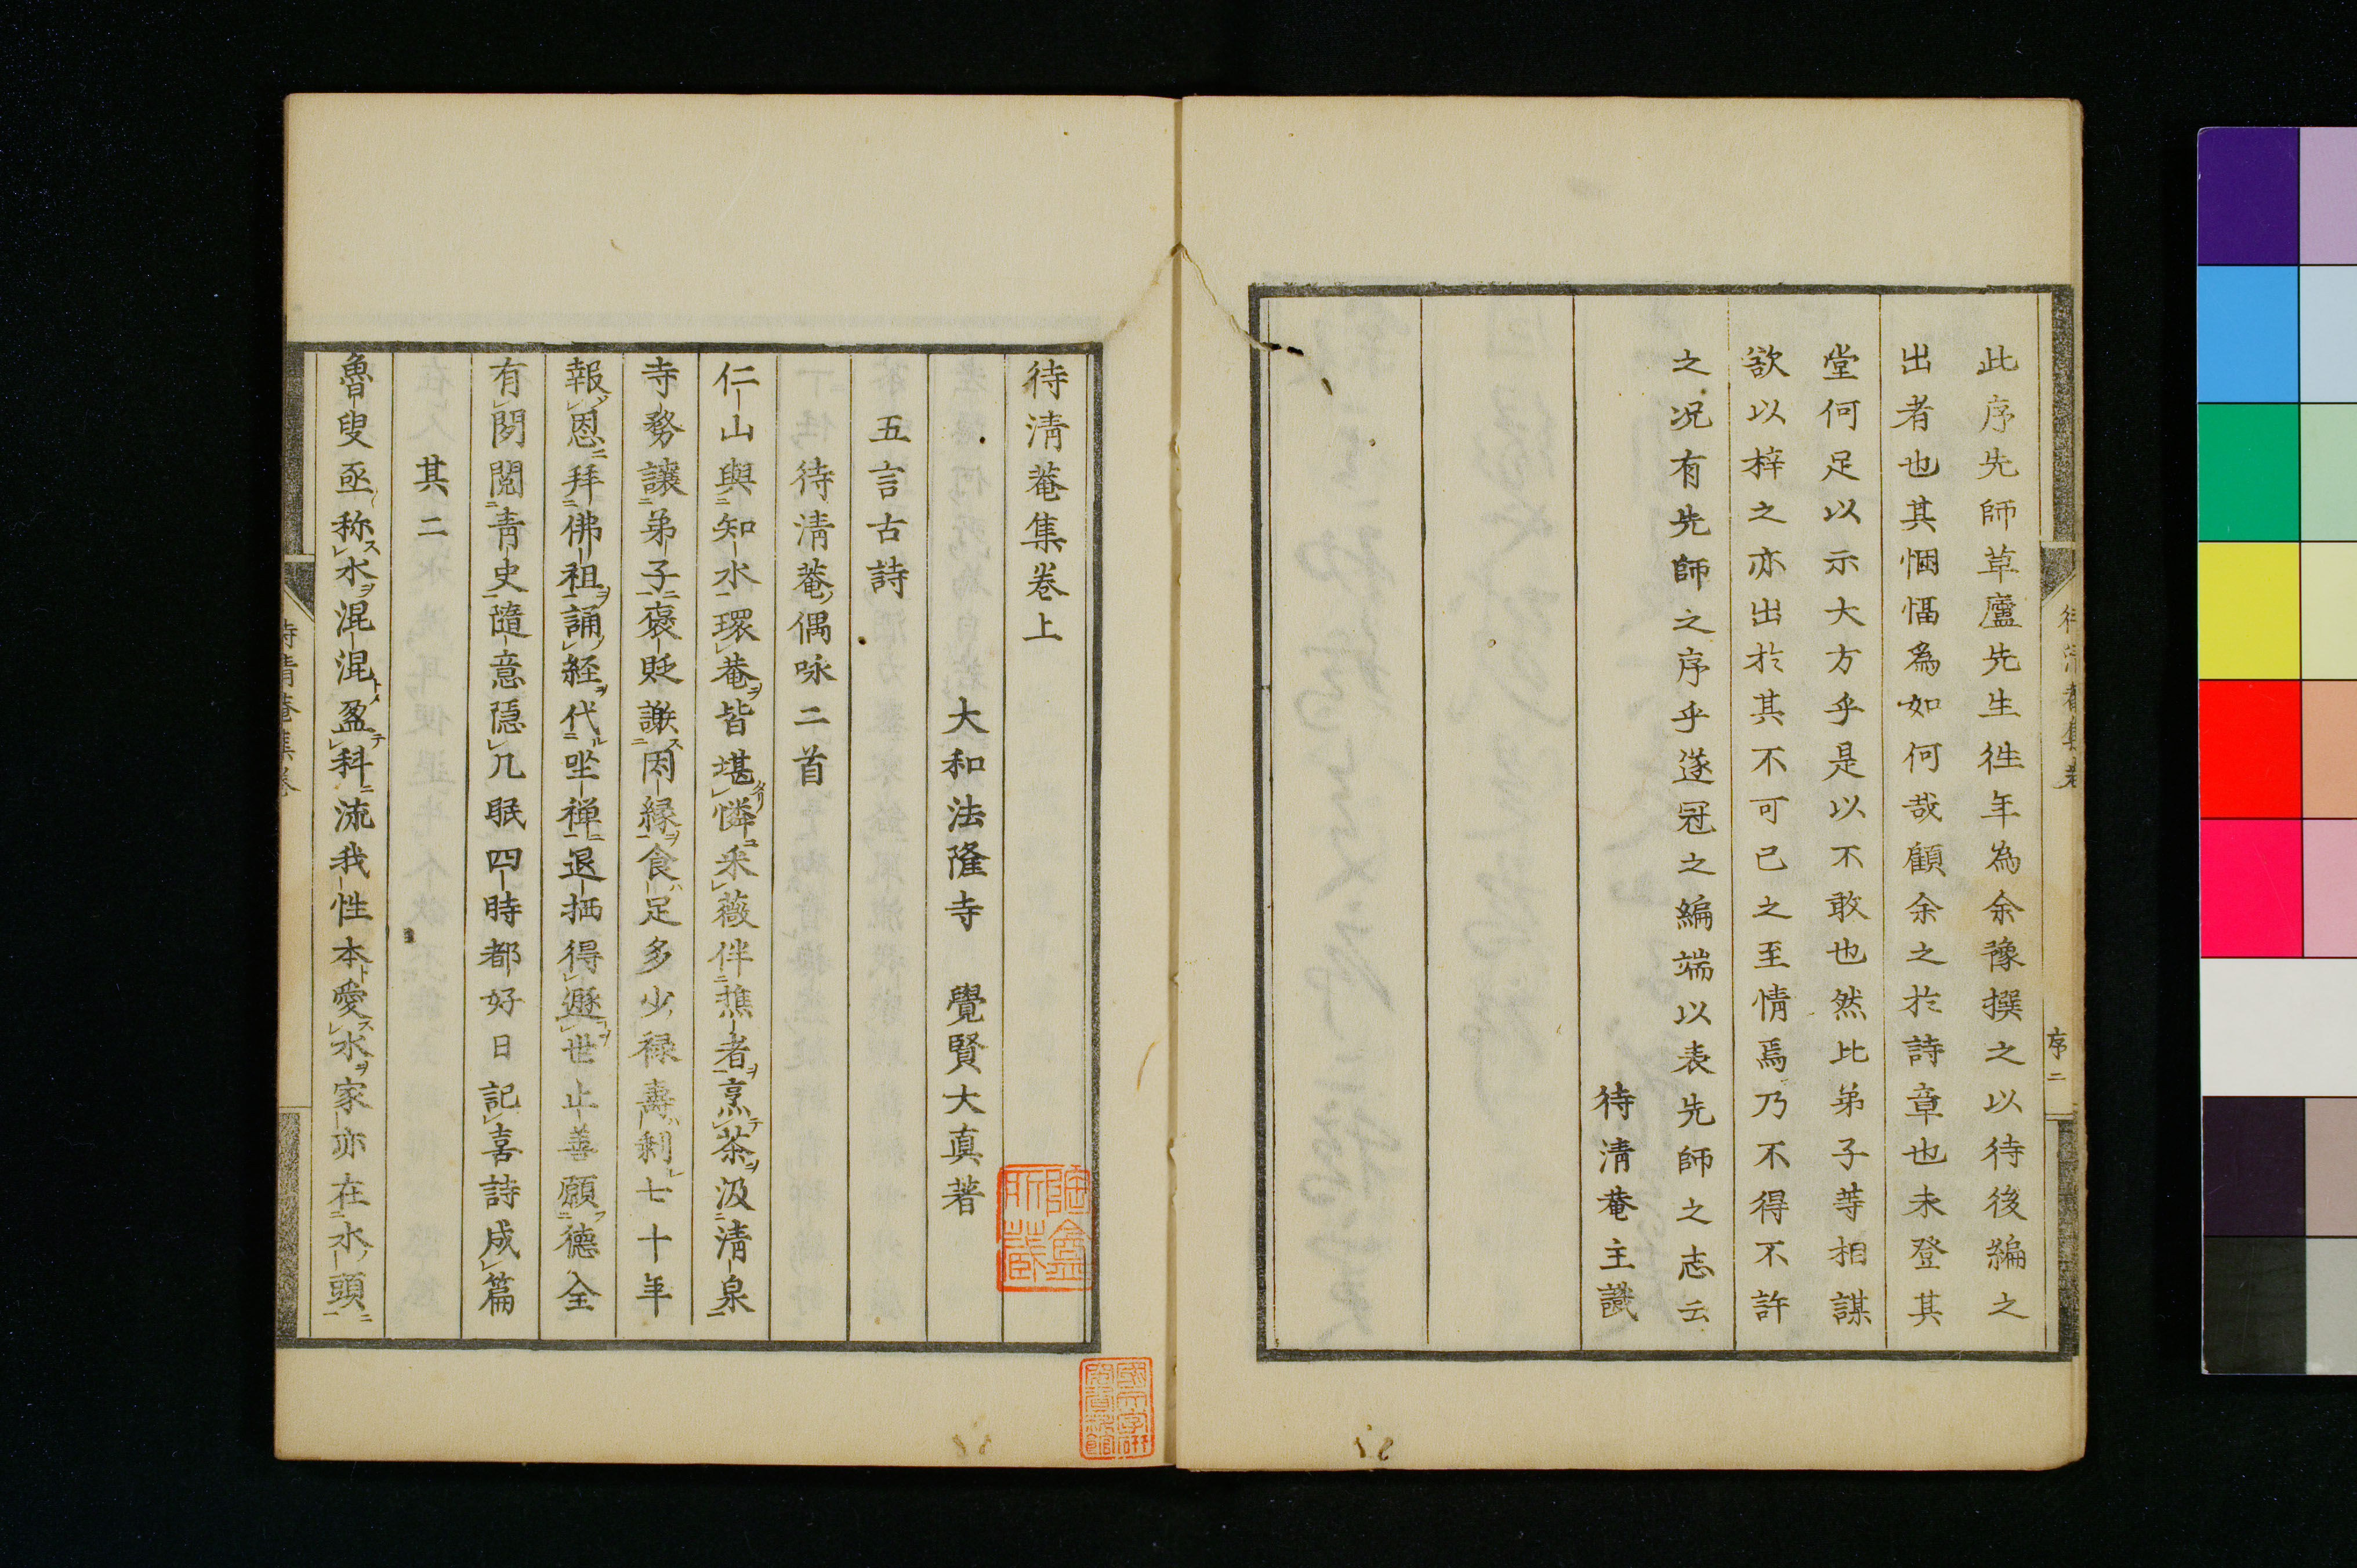 此序先師草廬先生徃年為余豫撰之以待後編之
出者也其悃愊為如何哉顧余之於詩章也未登其
堂何足以示大方乎是以不敢也然比弟子等相謀
欲以梓之亦出於其不可已之至情焉乃不得不許
之况有先師之序乎遂冠之編端以表先師之志云
待淸菴主識
序二
待淸菴集卷上
大和法隆寺 覺賢大眞著
五言古詩
待淸菴偶咏二首
仁山與知水環菴皆堪憐采薇伴樵者烹茶汲淸泉
寺務讓弟子褒貶謝因緣食足多少祿壽剩七十年
報恩拜佛祖誦経代坐禅退栖得遯世止善願德全
有閑閲靑史隨意隠几眠四時都好日記喜詩成篇
其二
魯叟亟称水混混盈科流我性本愛水家亦在水頭
待淸菴集卷